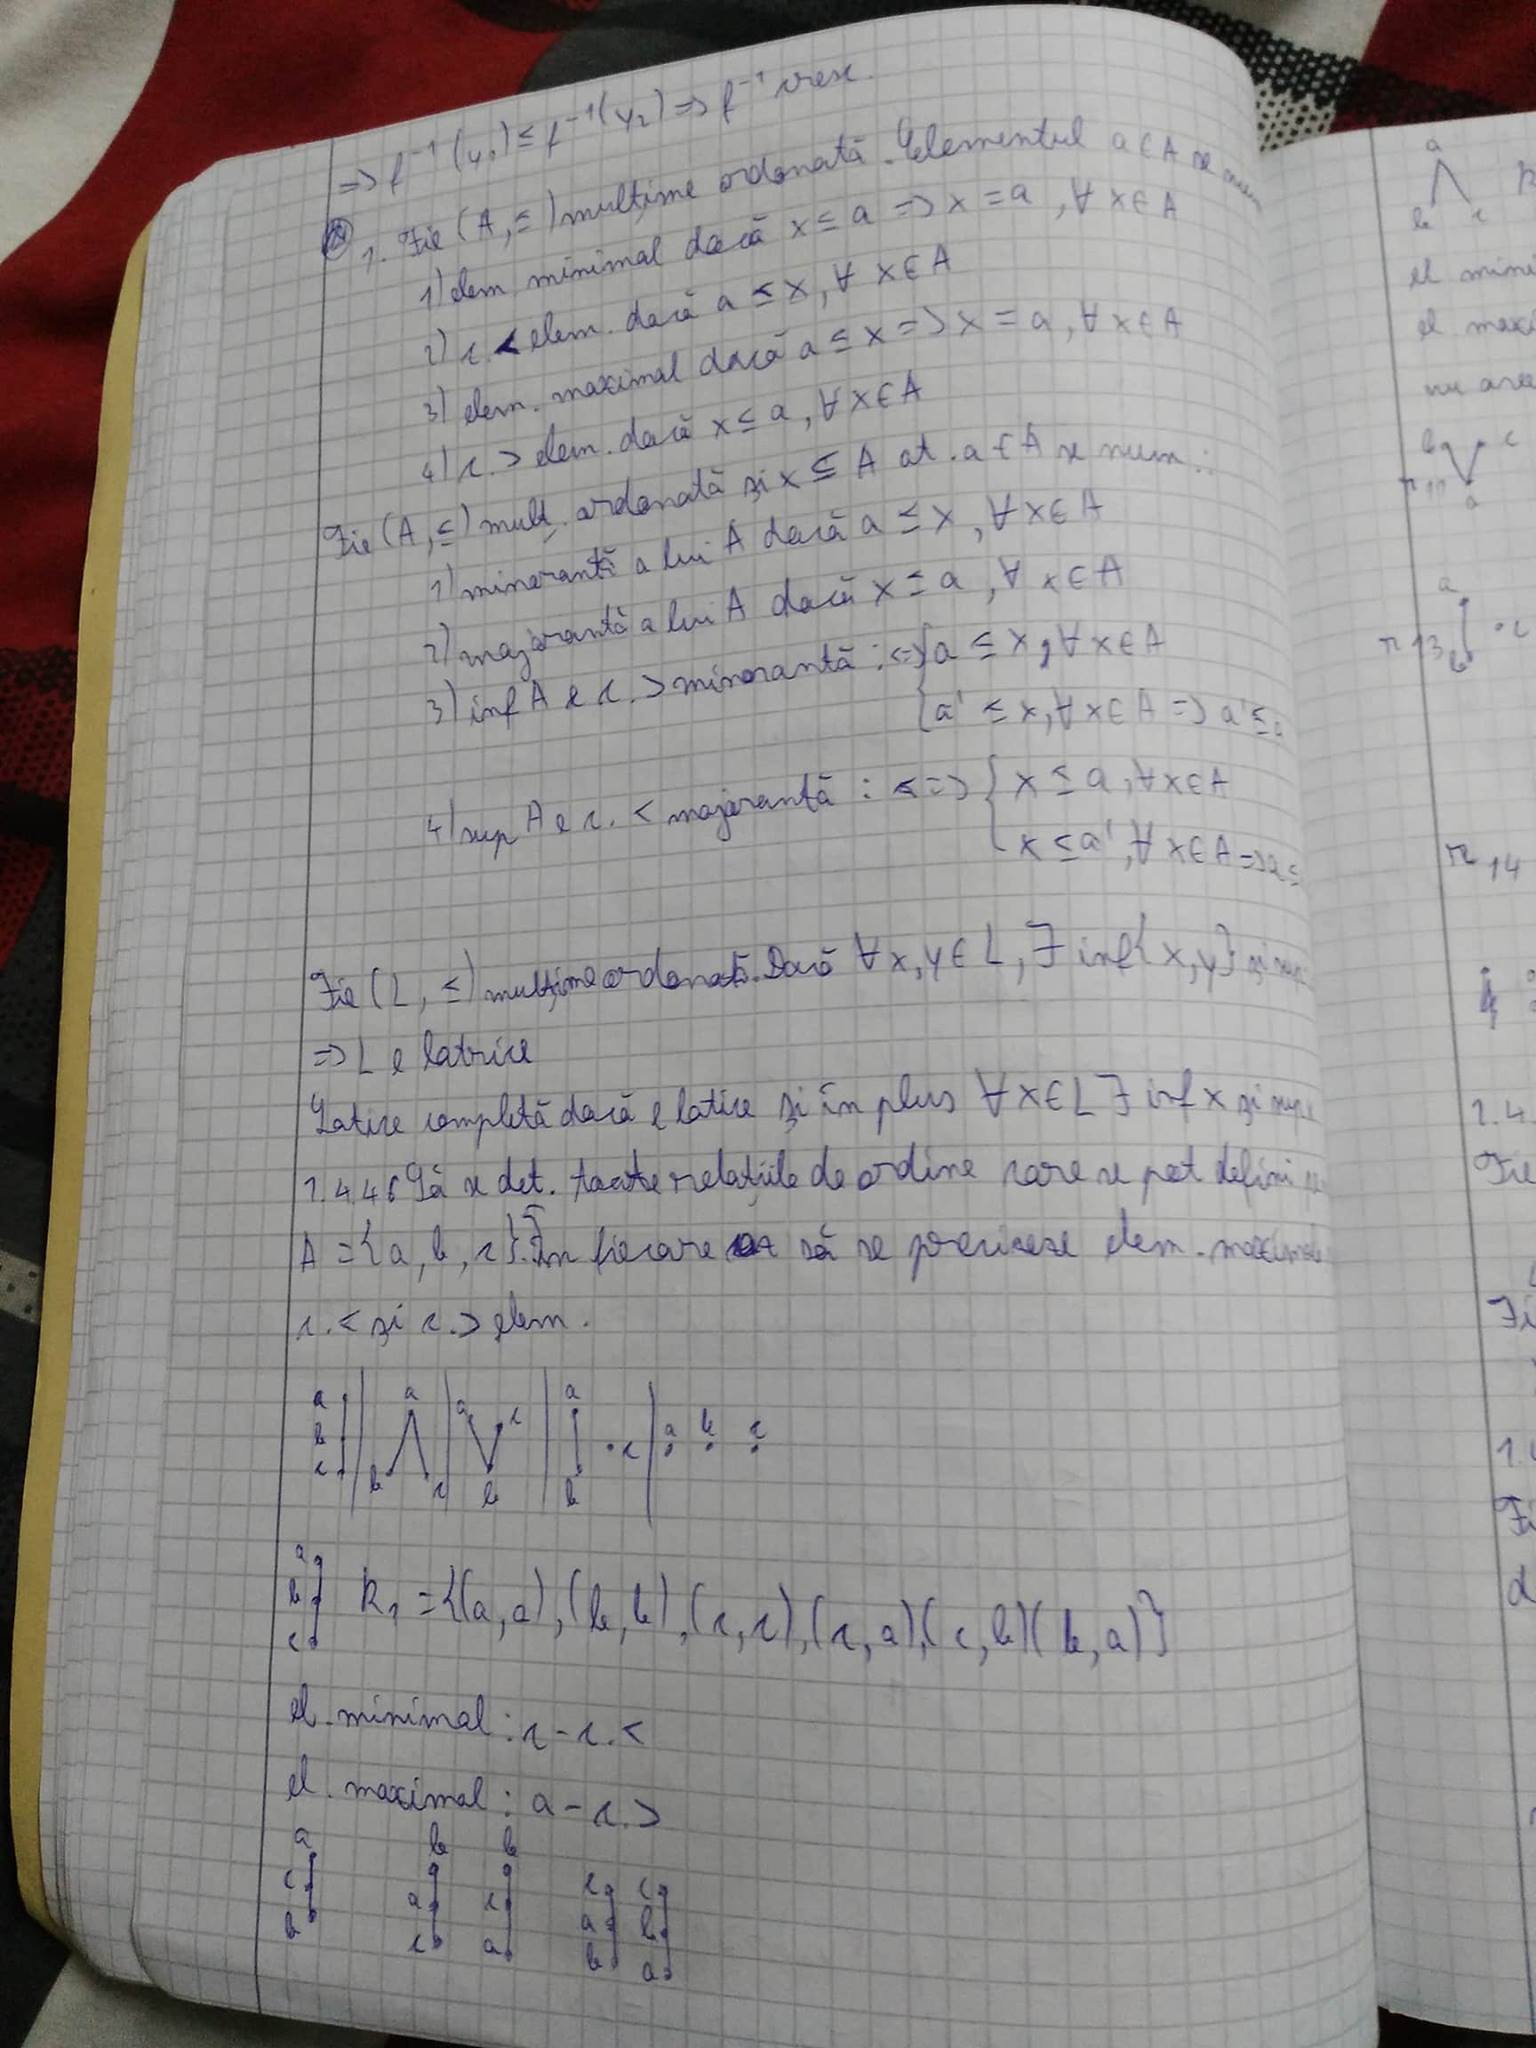 => f⁻¹(y₁) ≤ f⁻¹(y₂) => f⁻¹ cresc.
1. Fie (A, ≤) mulțime ordonată. Elementul a ∈ A se num
1) elem. minimal dacă x ≤ a => x = a, ∀ x ∈ A
2) c. < elem. dacă a ≤ x, ∀ x ∈ A
3) elem. maximal dacă a ≤ x => x = a, ∀ x ∈ A
4) c. > elem. dacă x ≤ a, ∀ x ∈ A
Fie (A, ≤) mulț. ordonată și x ⊆ A at. a ∈ A se num:
1) minorantă a lui A dacă a ≤ x, ∀ x ∈ A
2) majorantă a lui A dacă x ≤ a, ∀ x ∈ A
3) inf A e c. > minorantă :<=> { a ≤ x, ∀ x ∈ A
{ a' ≤ x, ∀ x ∈ A => a' ≤ a
4) sup A e c. < majorantă : <=> { x ≤ a, ∀ x ∈ A
x ≤ a', ∀ x ∈ A => a ≤
Fie (L, ≤) mulțime ordonată. Dacă ∀ x, y ∈ L, ∃ inf{x, y} și sup
=> L e latrice
Latice completă dacă e latice și în plus ∀ x ∈ L ∃ inf x și sup
1.4.46 Să se det. toate relațiile de ordine care se pot defini pe
A = {a, b, c}. În fiecare caz să se precizeze elem. maximale
c. < și c. > elem.
a a a c a
b c a b c
c b c b b
a
b R₁ = {(a, a), (b, b), (c, c), (c, a), (c, b) (b, a)}
c
el. minimal: c - c. <
el. maximal: a - c. >
a b b
c a c c c
b c a a b
b a
a
b c
el mini
el maxi
nu are
b c
a
a
r 13 c
b
r 14
1.4.
Fie
Fi
1.
Fi
d